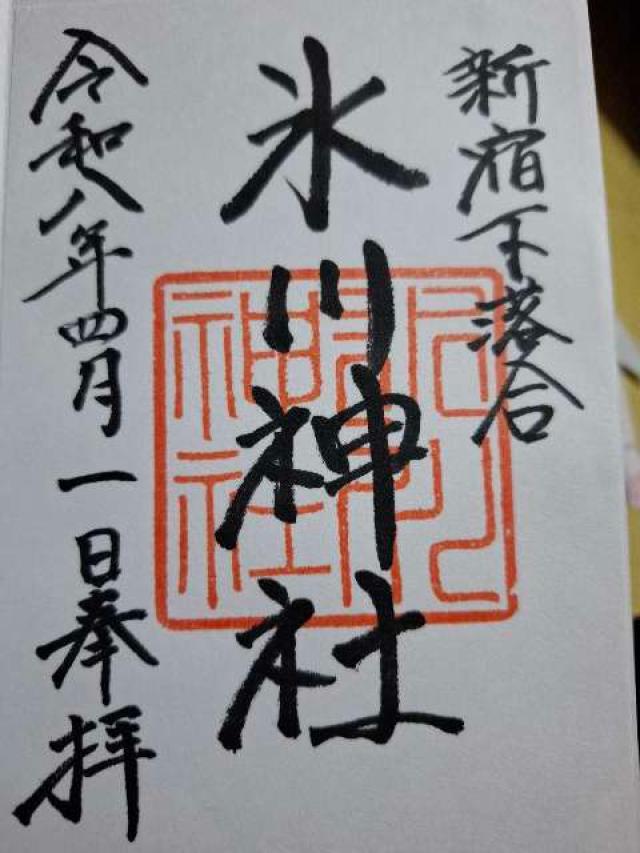 新宿下落合
氷川神社
令和八年四月一日奉拝